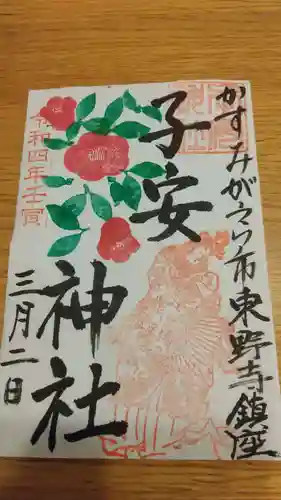 かすみがうら市東野寺鎮座
子安神社
令和四年壬寅
三月二日